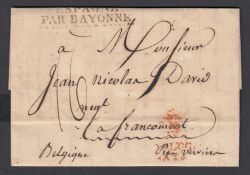 ESPAGNE
PAR BAYONNE
à Monsieur
Jean Nicolas David
negt
à francomont
Belgique
Vie verviers